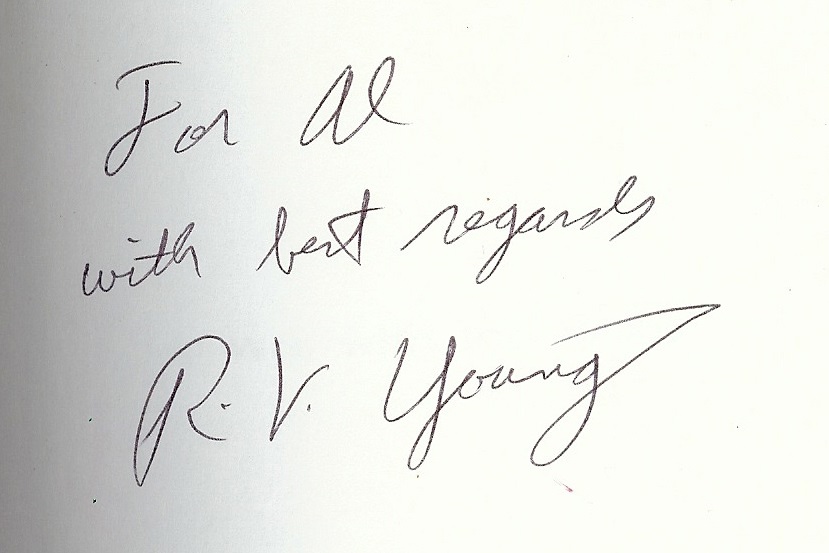 For Al
with best regards
R. V. Young